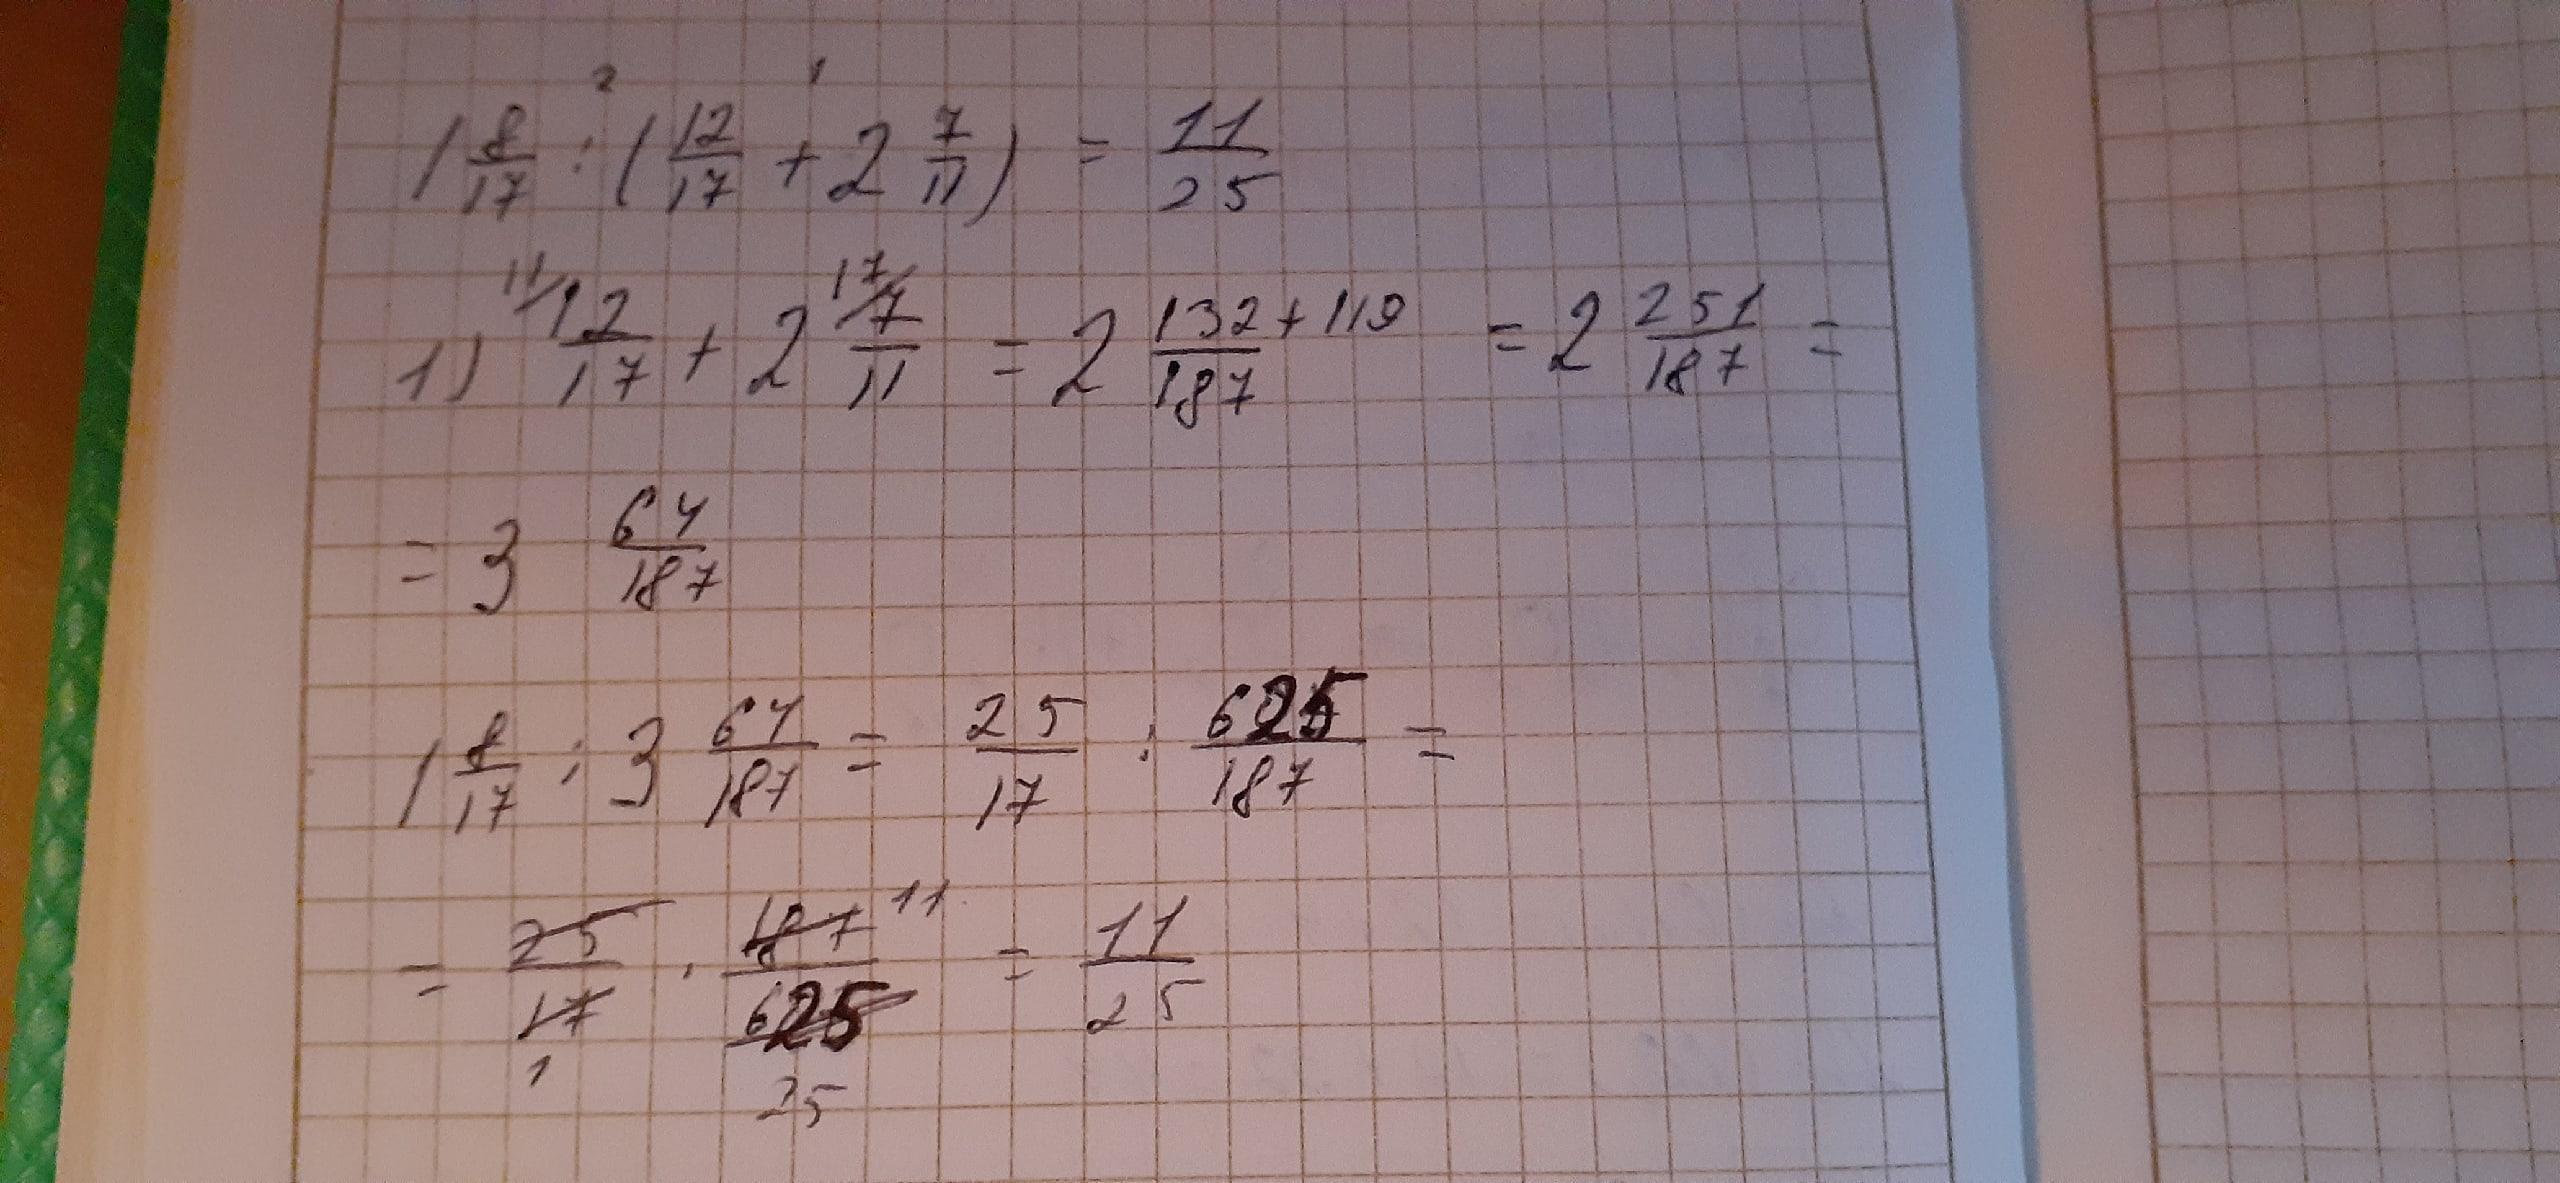 1 8/17 : (12/17 + 2 7/11) = 11/25
1) 12/17 + 2 7/11 = 2 132+119/187 = 2 251/187 =
= 3 64/187
1 8/17 : 3 64/187 = 25/17 : 625/187 =
= 25/17 · 187/625 = 11/25